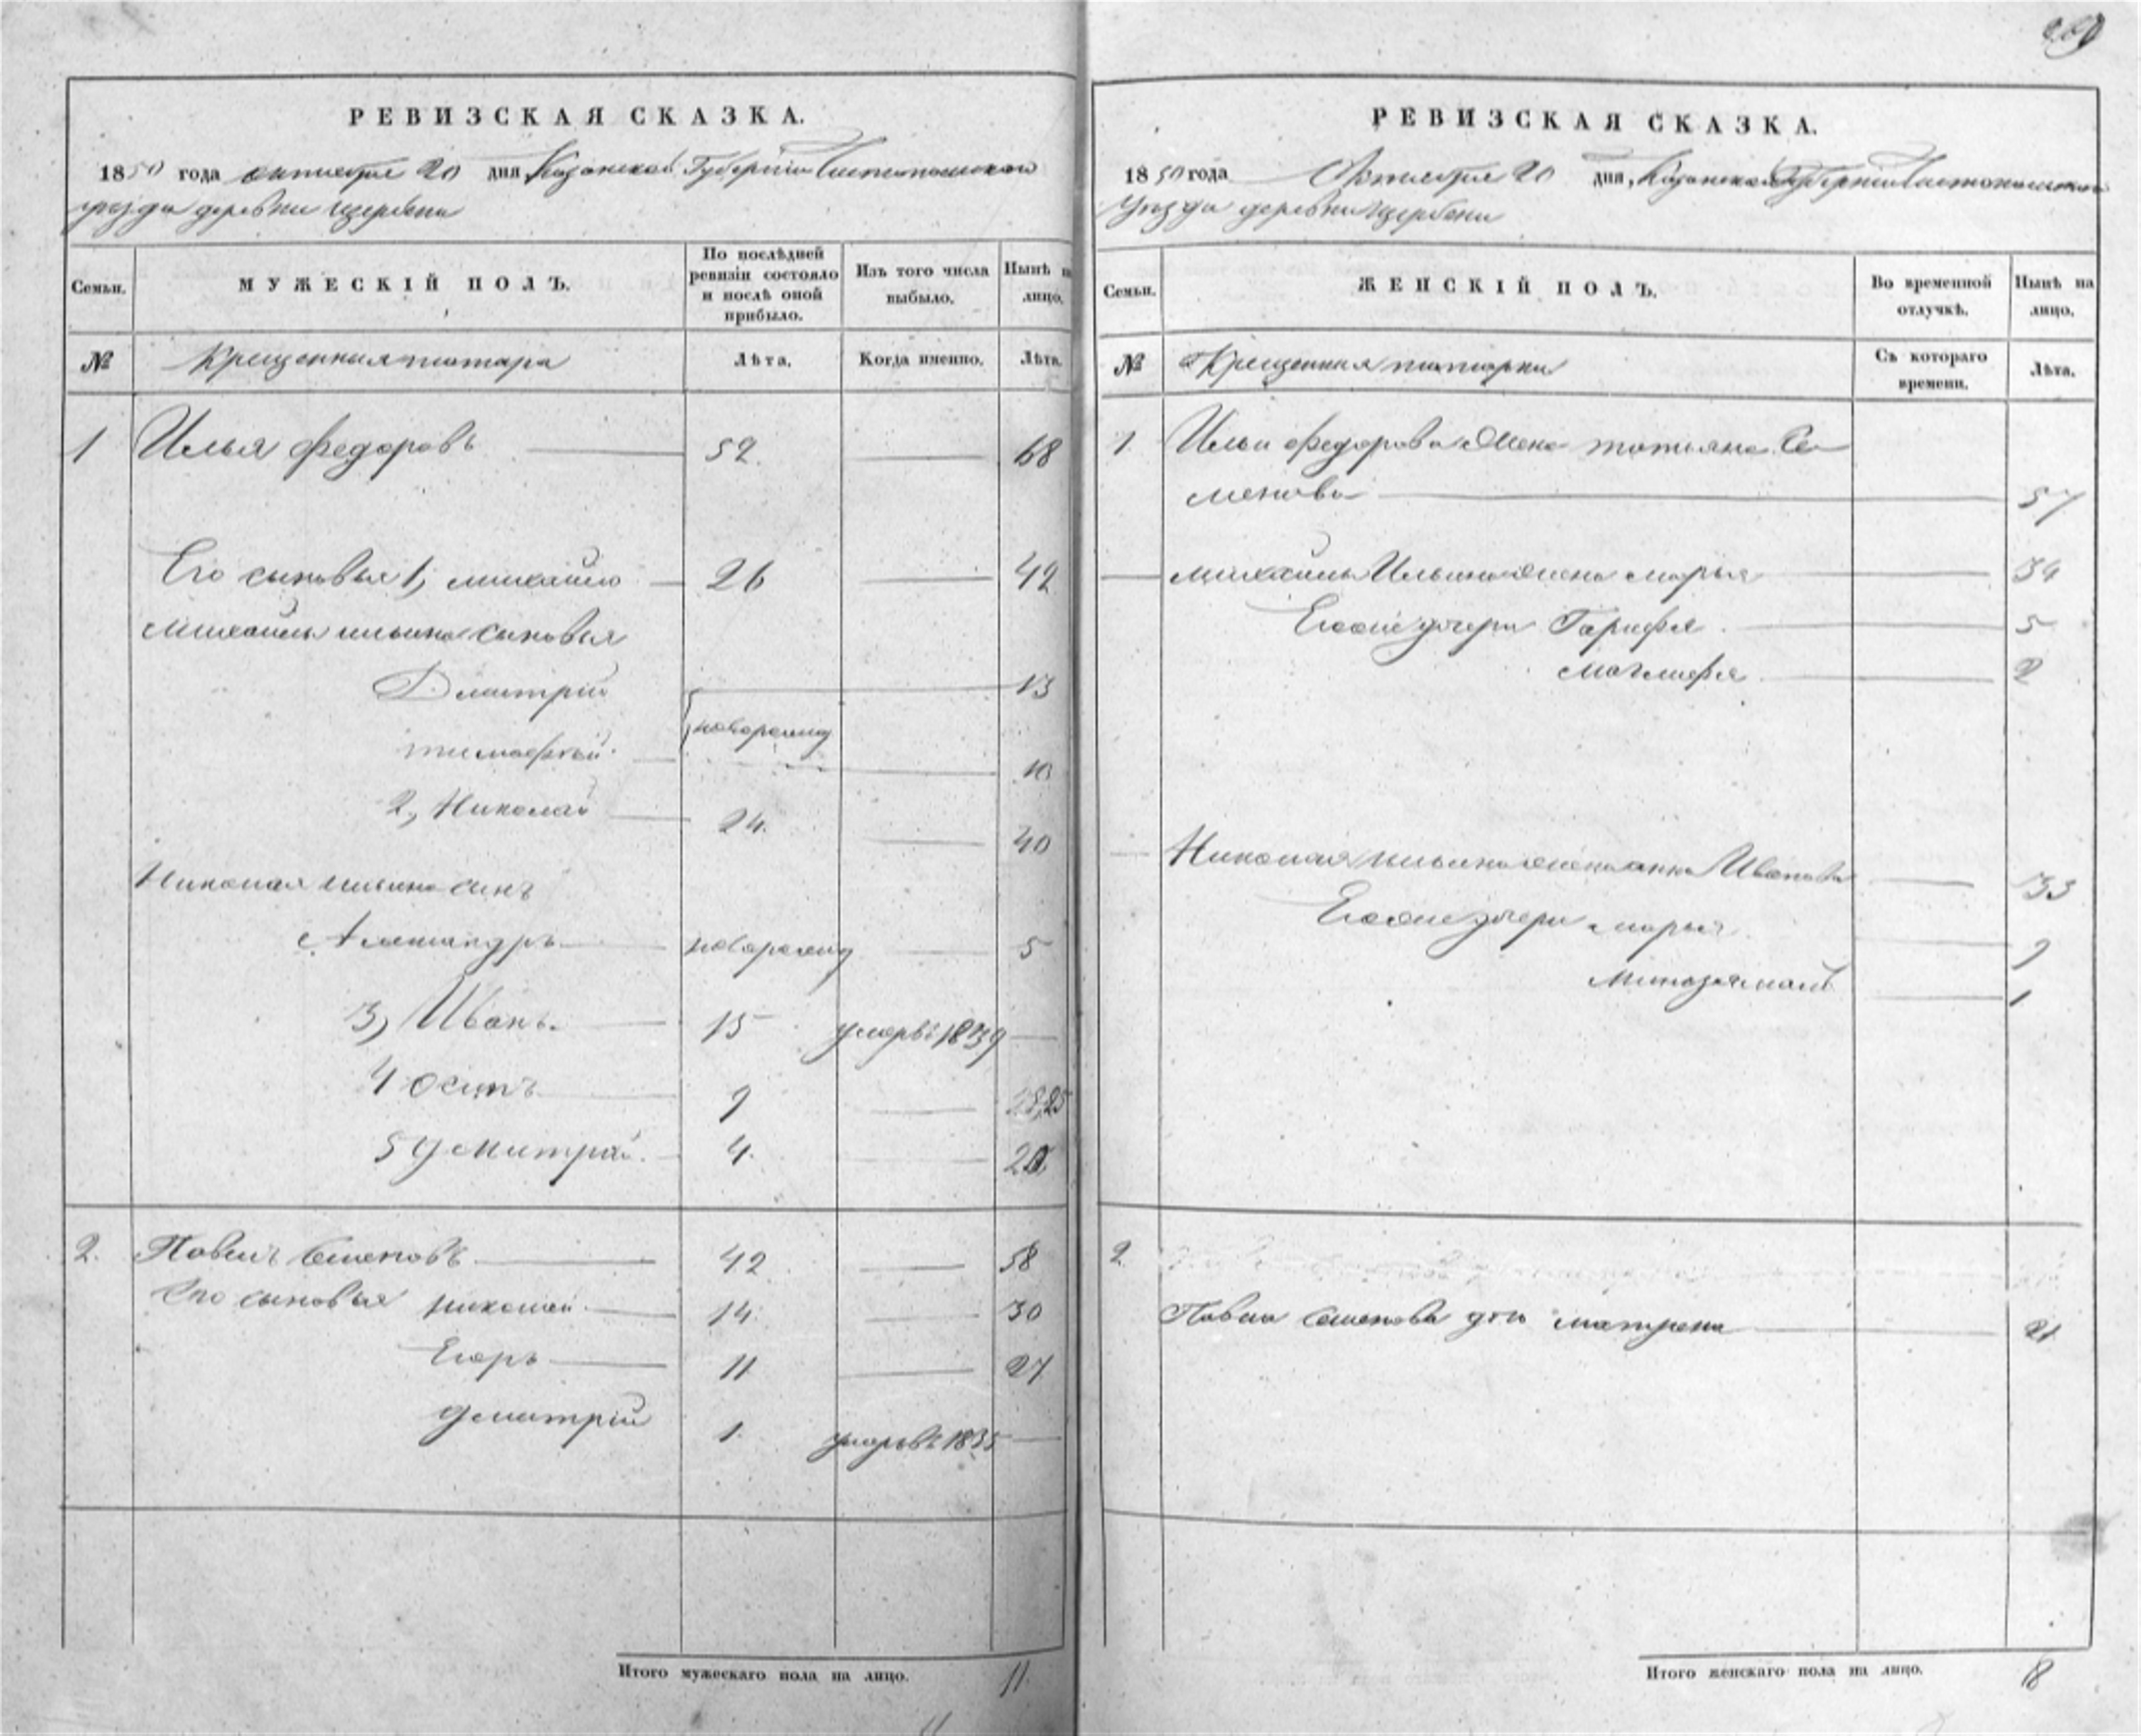 РЕВИЗСКАЯ СКАЗКА.
1850 года октября 20 дня Казанской Губернии Чистопольскаго
уезда деревни
Семьи.
МУЖЕСКІЙ ПОЛЪ.
По послѣдней ревизіи состояло и послѣ оной прибыло.
Изъ того числа выбыло.
Нынѣ на лицо.
№
Крещенныя татара
Лѣта.
Когда именно.
Лѣта.
1 Илья Федоровъ 52 68
Его сыновья 1, михайло 26 42
Михайлы ильина сыновья
Дмитрій 13
новорожд
тимофѣй 10
2, Николай 24 40
Николая ильина сынъ
Александръ новорожд 5
3, Иванъ 15 умеръ 1839
4 Осипъ 9 25
5 Дмитрій 4 20
2. Павелъ Семеновъ 42 58
Его сыновья николай 14 30
Егоръ 11 27
Дмитрій 1 умеръ 1835
Итого мужескаго пола на лицо. 11
РЕВИЗСКАЯ СКАЗКА.
1850 года Октября 20 дня, Казанской Губерніи Чистопольскаго
Уезда деревни
Семьи.
ЖЕНСКІЙ ПОЛЪ.
Во временной отлучкѣ.
Нынѣ на лицо.
№
Крещенныя татарки
Съ котораго времени.
Лѣта.
1. Ильи Федорова жена татьяна Се
менова 57
михайлы Ильина жена марья 34
Его же дочери 5
2
Николая ильина жена анна Иванова 33
Его же дочери марья 9
1
2
Павла Семенова дочь матрена 21
Итого женскаго пола на лицо. 8